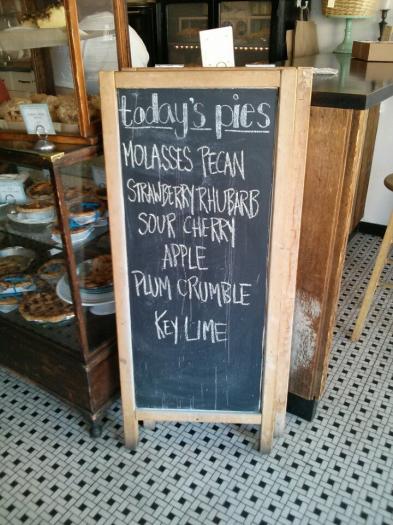 today's pies
MOLASSES PECAN
STRAWBERRY RHUBARB
SOUR CHERRY
APPLE
PLUM CRUMBLE
KEY LIME